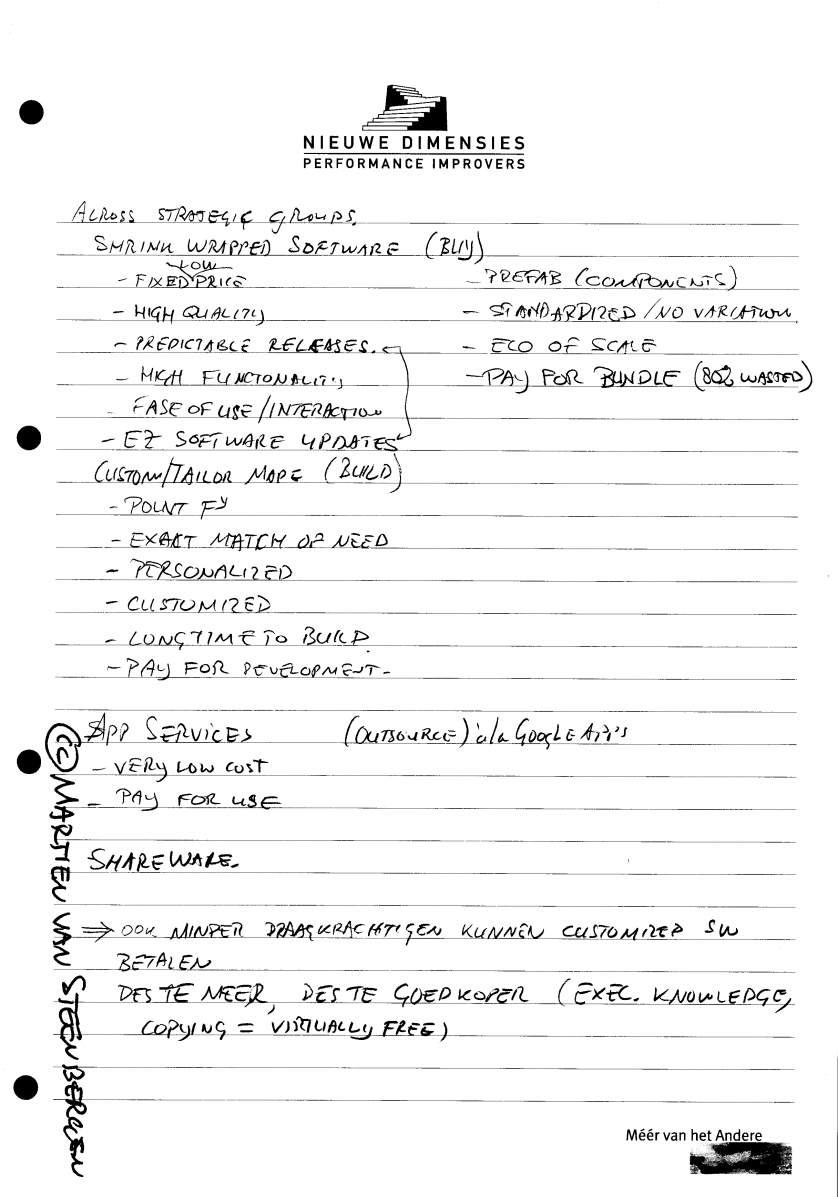 NIEUWE DIMENSIES
PERFORMANCE IMPROVERS
ACROSS STRATEGIC GROUPS.
SHRINK WRAPPED SOFTWARE (BUY)
LOW
- FIXED PRICE
- PREFAB (COMPONENTS)
- HIGH QUALITY
- STANDARDIZED / NO VARIATION
- PREDICTABLE RELEASES.
- ECO OF SCALE
- HIGH FUNCTIONALITY
- PAY FOR BUNDLE (80% WASTED)
EASE OF USE / INTERACTION
- EZ SOFTWARE UPDATES
CUSTOM/TAILOR MADE (BUILD)
- POINT
- EXACT MATCH OF NEED
- PERSONALIZED
- CUSTOMIZED
- LONG TIME TO BUILD
- PAY FOR DEVELOPMENT -
APP SERVICES (OUTSOURCE) à la GOOGLE APPS
- VERY LOW COST
- PAY FOR USE
SHAREWARE.
⇒ OOK MINDER DRAAGKRACHTIGEN KUNNEN CUSTOMIZED SW
BETALEN
DES TE MEER, DES TE GOEDKOPER (EXEC. KNOWLEDGE,
COPYING = VIRTUALLY FREE)
(cc) MARTIEN VAN STEENBERGEN
Méér van het Andere